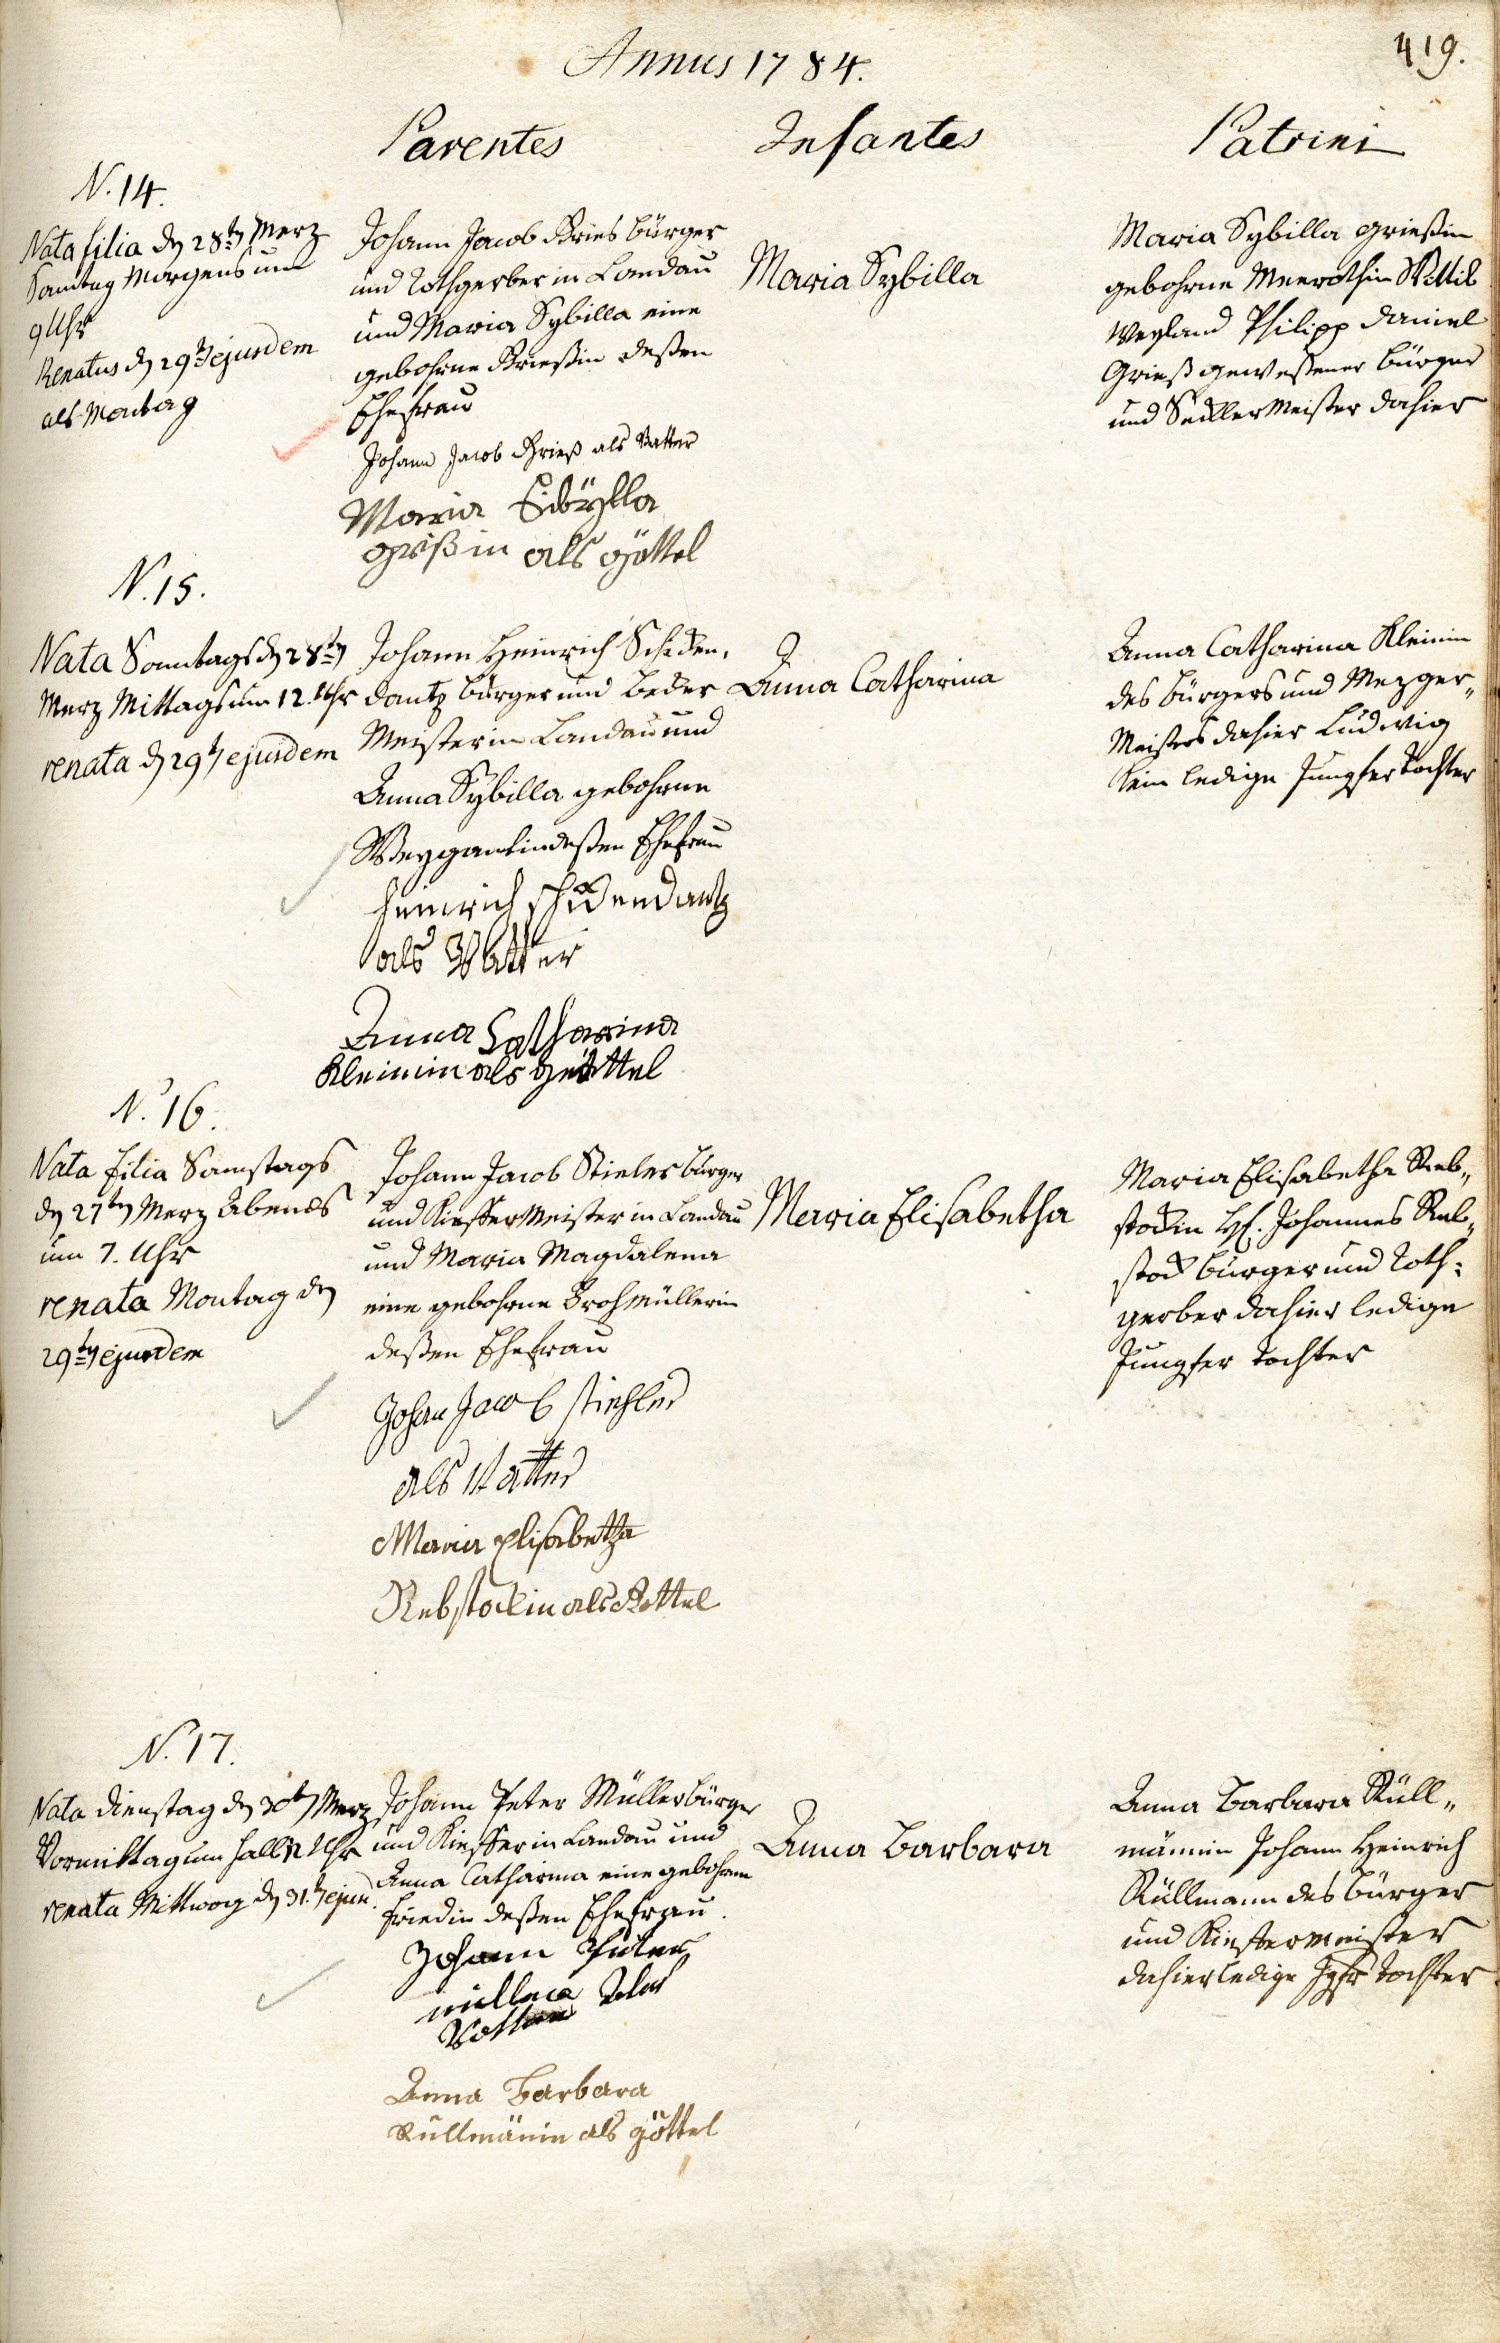 419.
Annus 1784.
Parentes Infantes Patrini
N. 14.
Nata filia dn 28tn Merz
Sontag Morgens um
9 Uhr
Renatus dn 29tn ejusdem
als Montag
Johann Jacob Gries Bürger
und Rothgerber in Landau
und Maria Sybilla eine
gebohrne Grießin deßen
Ehefrau
Johann Jacob Grieß als Vatter
Maria Sibÿlla
grißin als göttel
Maria Sybilla
Maria Sybilla Grießin
gebohrne Meerothin Wittib
Weyland Philipp Daniel
Grieß gewesener Bürger
und Seiler Meister dahier
N. 15.
Nata Sonntags dn 28tn
Merz Mittags um 12. Uhr
renata dn 29tn ejusdem
Johann Heinrich Schicken,
dantz Bürger und Becker
Meister in Landau und
Anna Sybilla gebohrne
Weygantin deßen Ehefrau
Heinrich schickendantz
als Vatter
Anna Catharina
Kleinin als Göttel
Anna Catharina
Anna Catharina Kleinin
des Bürgers und Mezger„
Meisters dahier Ludwig
Klein ledige Jungfer Tochter
N. 16.
Nata filia Samstags
dn 27tn Merz Abends
um 7. Uhr
renata Montag dn
29tn ejusdem
Johann Jacob Stieler Bürger
und Kieffer Meister in Landau
und Maria Magdalena
eine gebohrne Brohmüllerin
deßen Ehefrau
Johan Jacob stiehler
als Vatter
Maria Elisabetha
Rebstockin als Göttel
Maria Elisabetha
Maria Elisabetha Reb„
stockin H. Johannes Reb„
stock Bürger und Roth:
gerber dahier ledige
Jungfer Tochter
N. 17.
Nata Dienstag dn 30tn Merz
Vormittag um halb 12 Uhr
renata Mittwog dn 31.tn ejusd.
Johann Peter Müller Bürger
und Kieffer in Landau und
Anna Catharina eine gebohrne
Friedin deßen Ehefrau.
Johann Peter
müller als
Vatter
Anna Barbara
Rüllmännin als göttel
Anna Barbara
Anna Barbara Rüll„
männin Johann Heinrich
Rüllmann des Bürger
und Kieffermeister
dahier ledige Jgfr Tochter